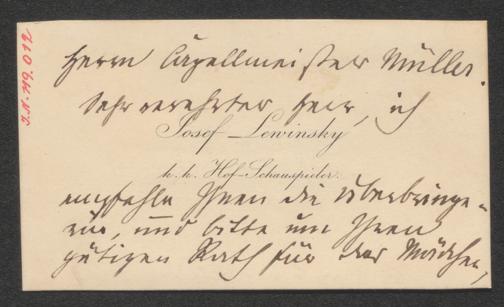 I.N. 119.012
Herrn Capellmeister Müller.
Sehr verehrter Herr, ich
Josef Lewinsky
k. k. Hof-Schauspieler.
empfehle Ihnen die Überbringe-
rin, und bitte um Ihren
gütigen Rath für das Mädchen,